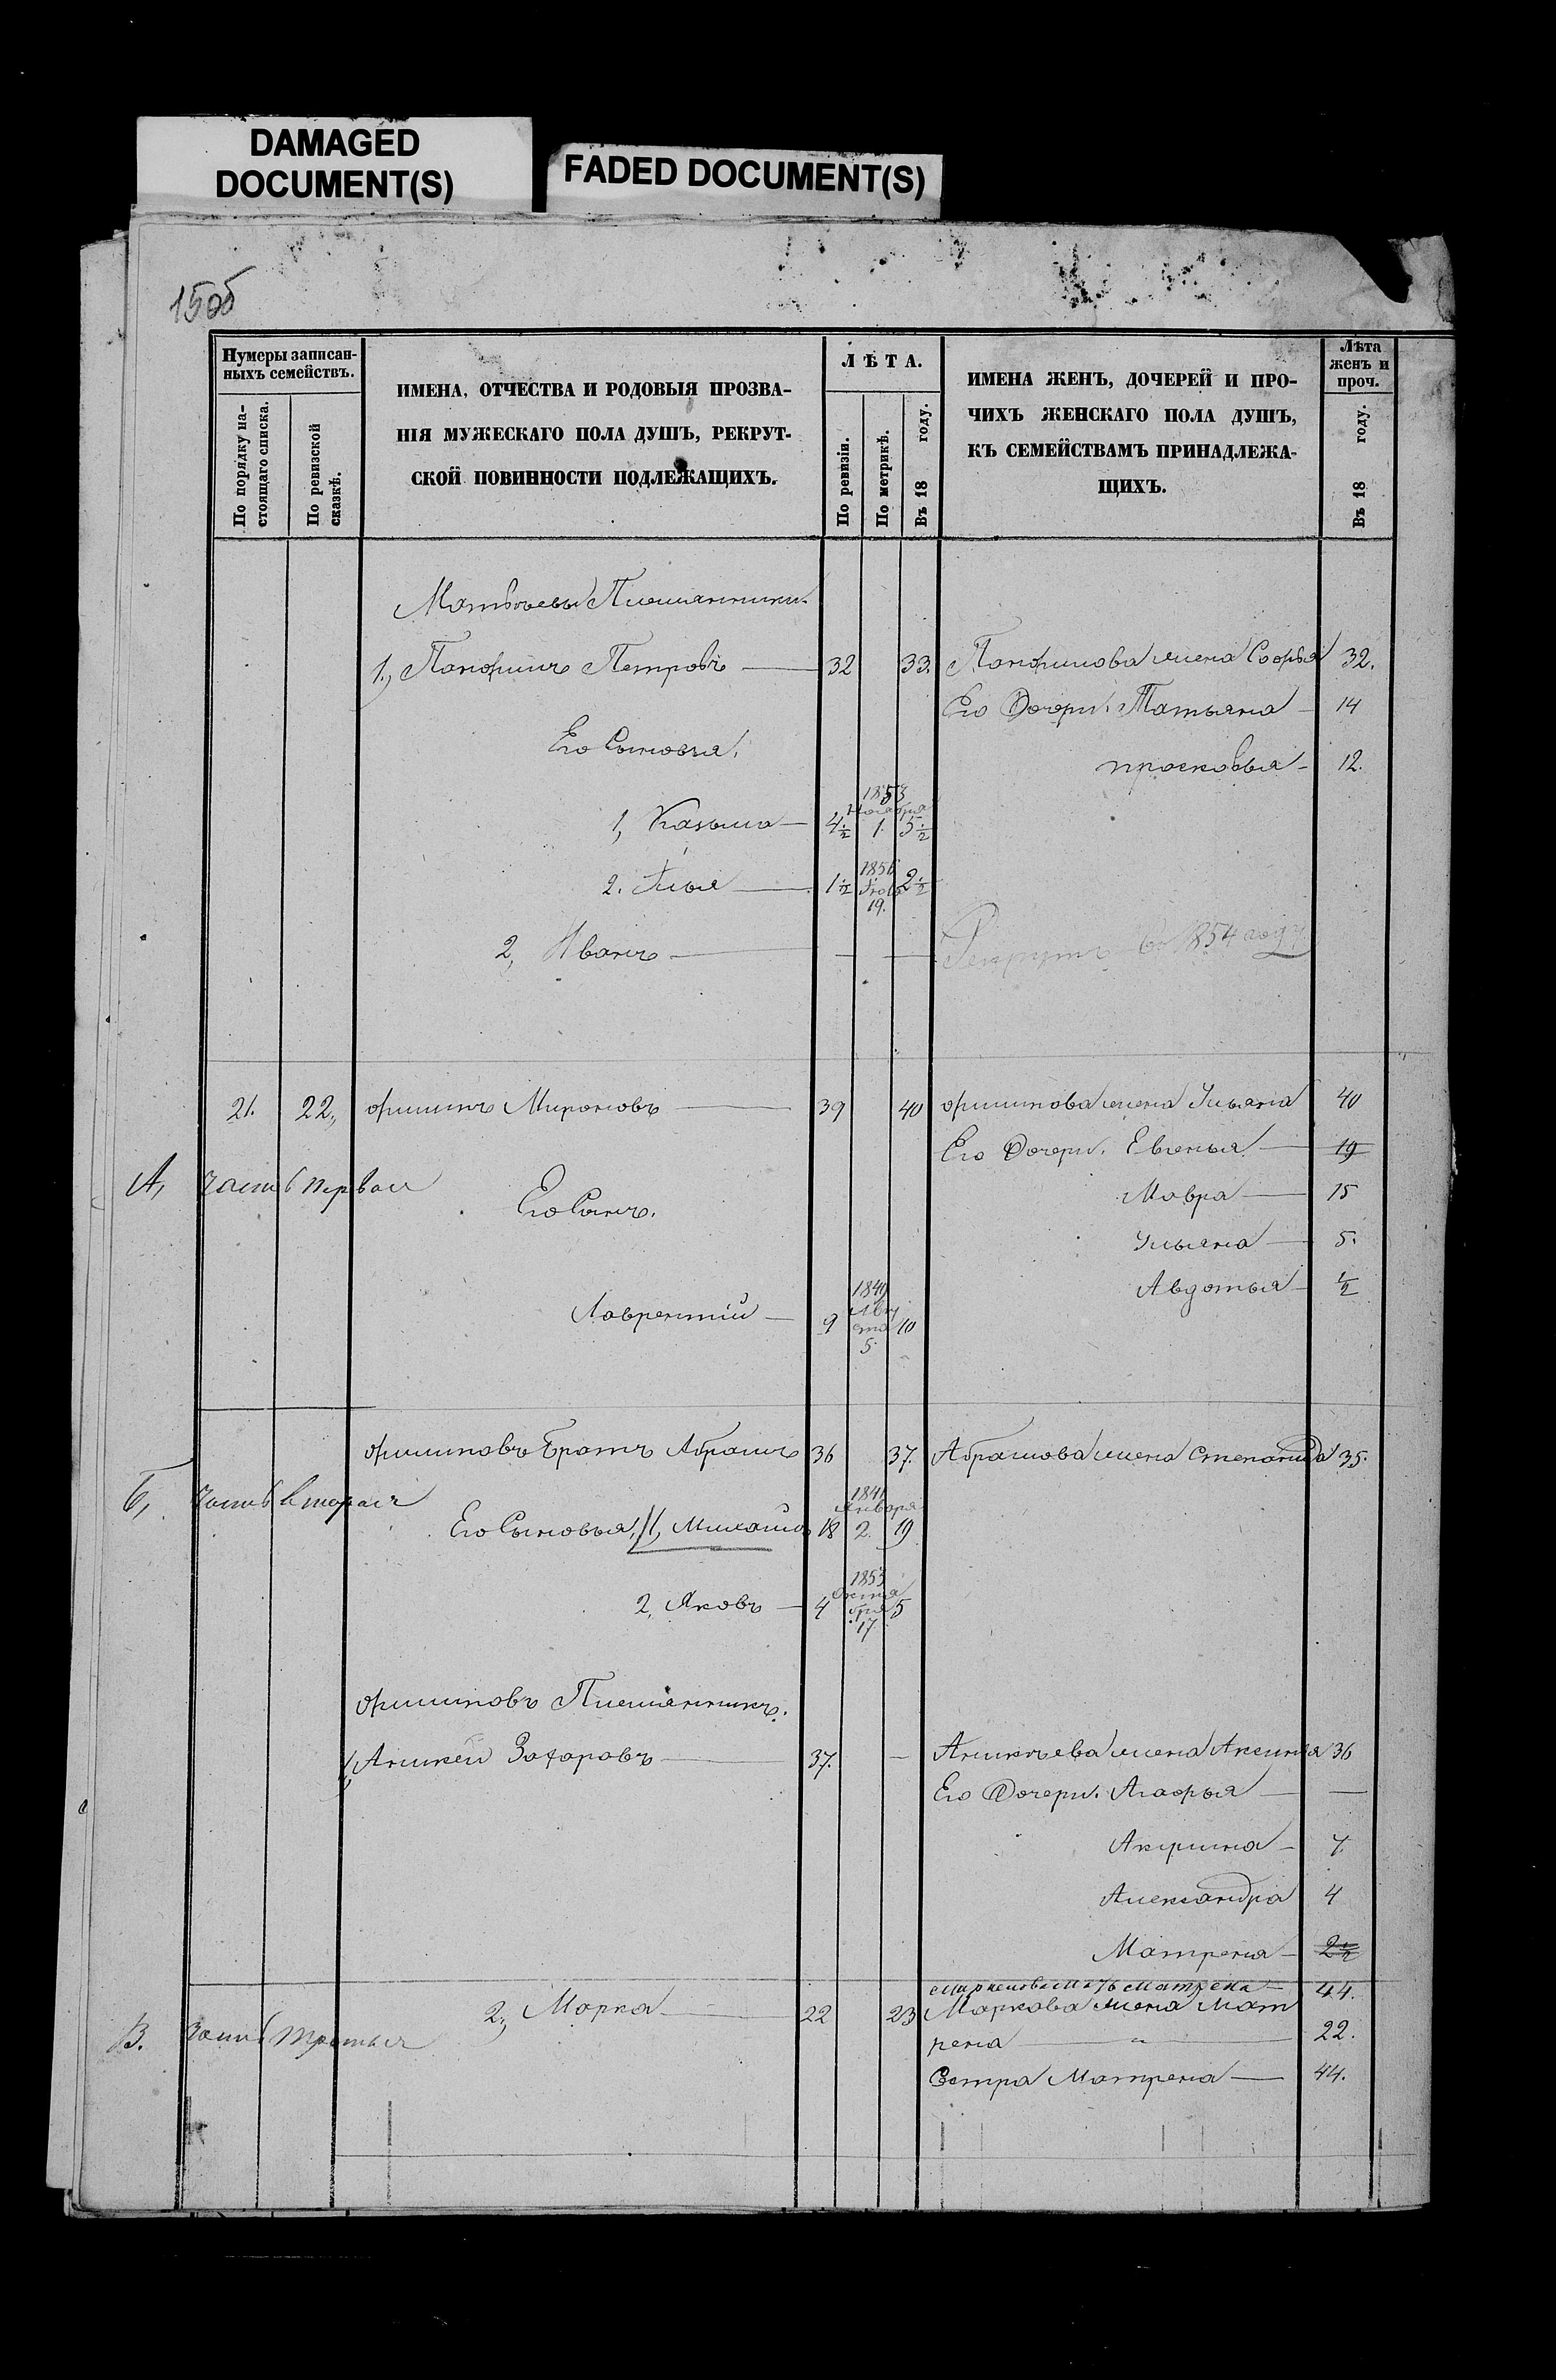 DAMAGED
DOCUMENT(S)
FADED DOCUMENT(S)
150б
Нумеры записан-
ныхъ семействъ.
По порядку на-
стоящаго списка.
По ревизской
сказкѣ.
ИМЕНА, ОТЧЕСТВА И РОДОВЫЯ ПРОЗВА-
НІЯ МУЖЕСКАГО ПОЛА ДУШЪ, РЕКРУТ-
СКОЙ ПОВИННОСТИ ПОДЛЕЖАЩИХЪ.
ЛѢТА.
По ревизіи.
По метрикѣ.
Въ 18 году.
ИМЕНА ЖЕНЪ, ДОЧЕРЕЙ И ПРО-
ЧИХЪ ЖЕНСКАГО ПОЛА ДУШЪ,
КЪ СЕМЕЙСТВАМЪ ПРИНАДЛЕЖА-
ЩИХЪ.
Лѣта
женъ и
проч.
Въ 18 году.
Матвѣевы Племянники.
1, Панфилъ Петровъ 32 33. Панфилова жена Софья 32.
Его Дочери. Татьяна 14
Его Сыновья.
просковья 12.
1, Казьма 4½ 1853 Ноября 1. 5½
2. Илья 1½ 1856 19. 2½
2, Иванъ — — Рекрутъ въ 1854 году
21. 22, филипъ Мироновъ 39 40 филипова жена Ульяна 40
Его Дочери. Евгенья 19
А, Часть первая
Его Сынъ.
Мавра 15
Ульяна 5.
Авдотья ½
Лаврентій 9 1849 Авгу ста 5. 10
филиповъ Братъ Абрамъ 36 37. Абрамова жена Степанида 35.
Б, Часть вторая
Его Сыновья, 1, Михаилъ 18 1841 Января 2. 19
2, Яковъ 4 1853 Октя бря 17 5
филиповъ Племянникъ.
1, Аникей Захаровъ 37. — Аникѣева жена Аксинья 36
Его Дочери. Агафья —
Акулина 7.
Александра 4
Матрена 2½
Мать Матрена 44.
2, Марка 22 23 Маркова жена Мат
В. Часть третья
рена 22.
Сестра Матрена 44.